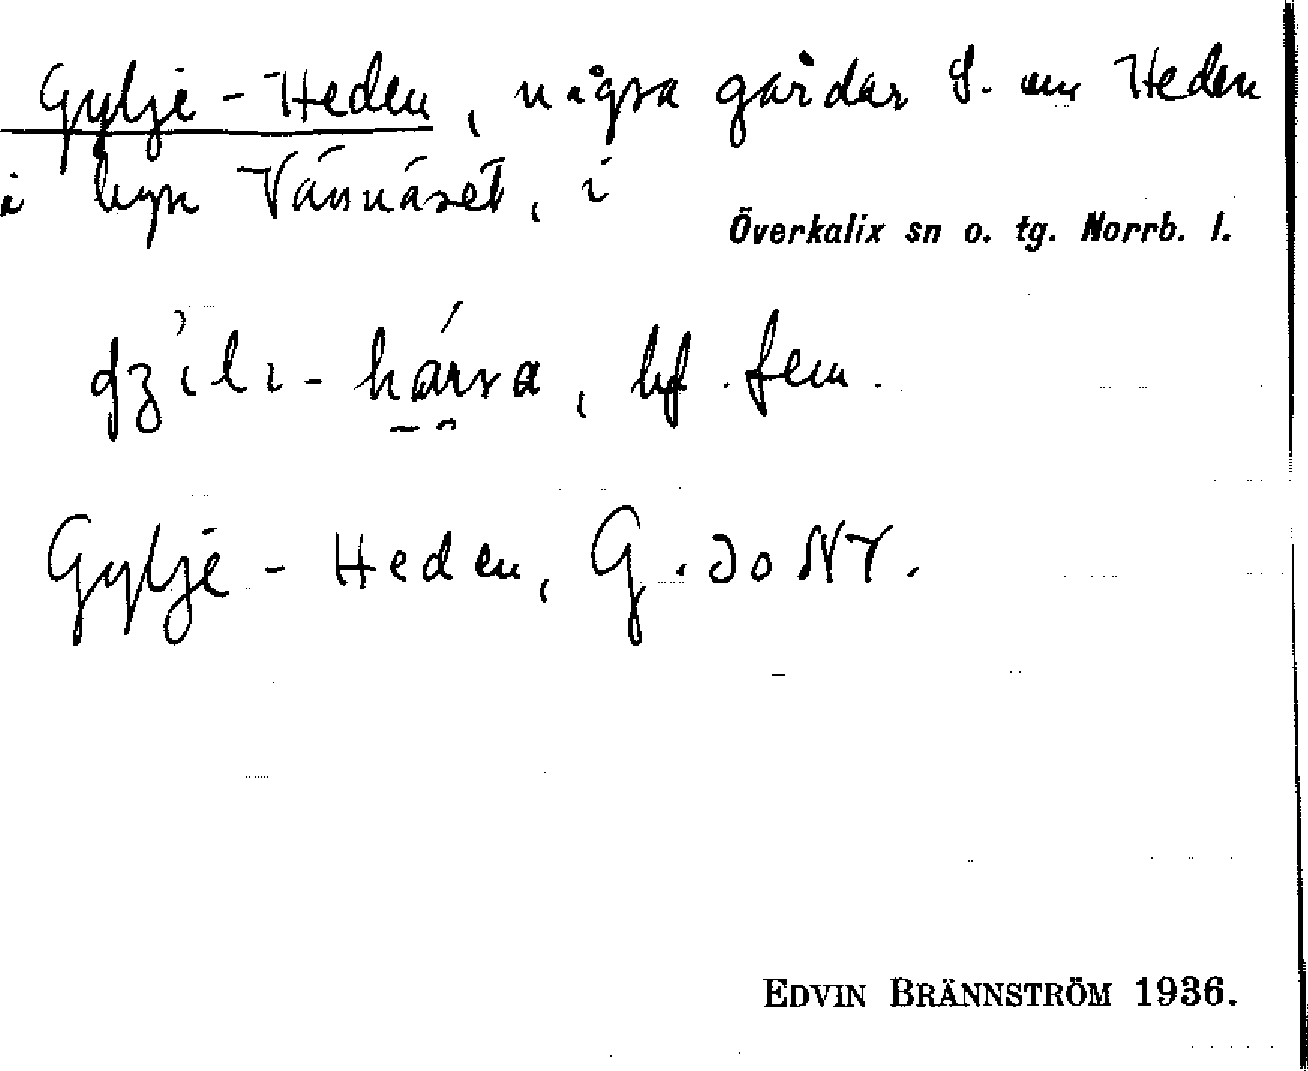 Gylje-Heden, några gårdar S. om Heden
i byn Vännäset, i
Överkalix sn o. tg. Norrb. l.
bf. fem.
Gylje-Heden, G. do NY.
EDVIN BRÄNNSTRÖM 1936.